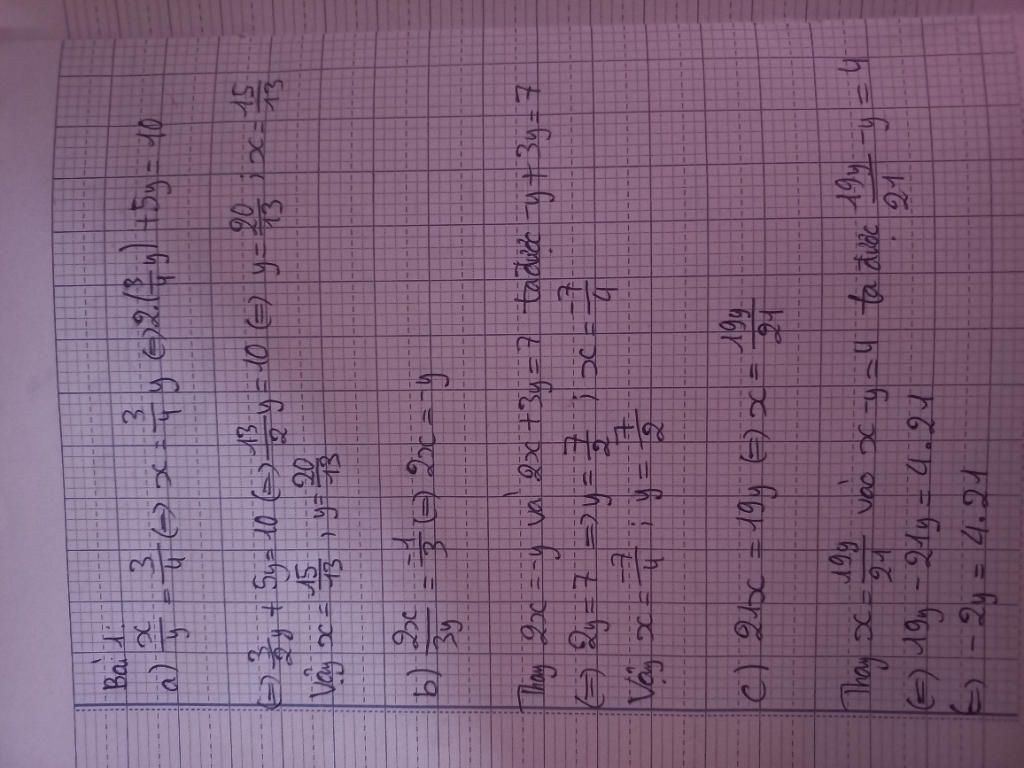 Bài 1:
a) x/y = 3/4 (=) x = 3/4 y (=) 2.(3/4 y) + 5y = 10
(=) 3/2 y + 5y = 10 (=) 13/2 y = 10 (=) y = 20/13 ; x = 15/13
Vậy x = 15/13 ; y = 20/13
b) 2x/3y = -1/3 (=) 2x = -y
Thay 2x = -y và 2x + 3y = 7 ta được -y + 3y = 7
(=) 2y = 7 => y = 7/2 ; x = -7/4
Vậy x = -7/4 ; y = 7/2
c) 21x = 19y (=) x = 19y/21
Thay x = 19y/21 vào x - y = 4 ta được 19y/21 - y = 4
(=) 19y - 21y = 4.21
(=) -2y = 4.21